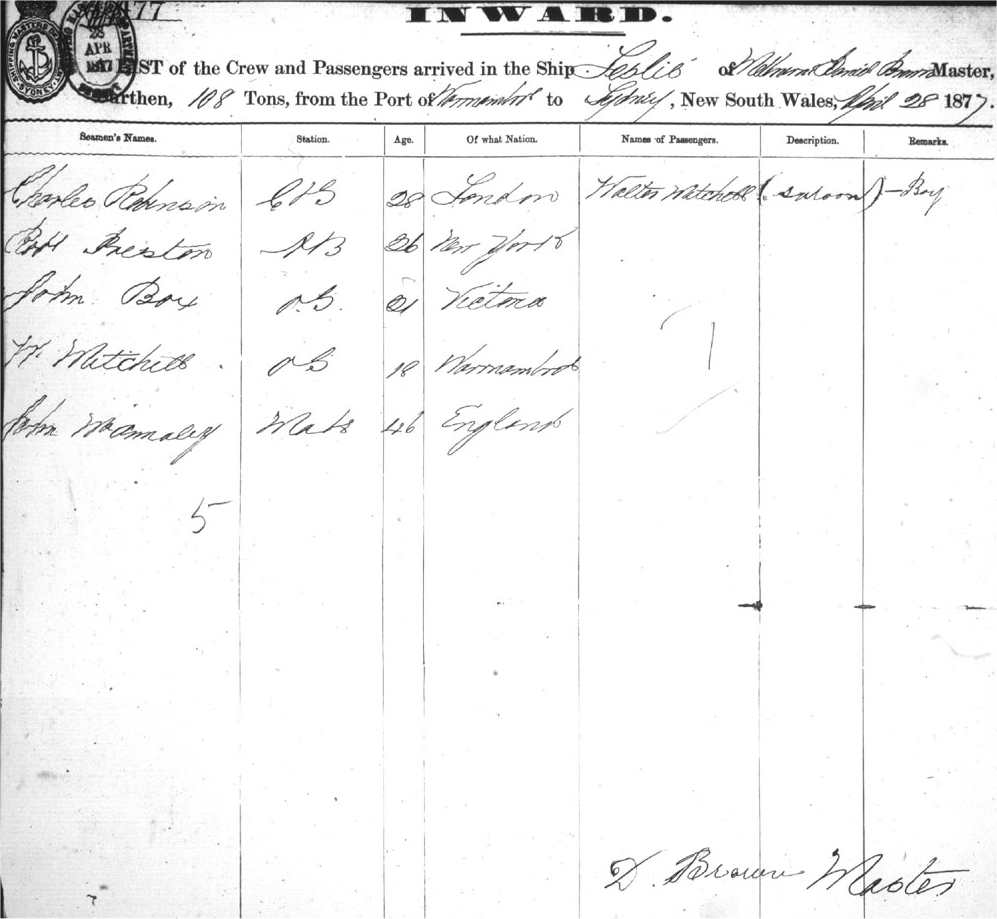 77
INWARD.
SHIPPING MASTERS SYDNEY
APR
LIST of the Crew and Passengers arrived in the Ship Leslie of Melbourne Daniel Brown Master,
Burthen, 108 Tons, from the Port of Warrnambool to Sydney, New South Wales, April 28 1877.
Seamen's Names. Station. Age. Of what Nation. Names of Passengers. Description. Remarks.
Charles Robinson C&S 28 London Walter Mitchell (saloon) - Boy
Robt Preston AB 26 New York
John Box O.S. 21 Victoria
W. Mitchell OS 18 Warrnambool
John Mate 46 England
1
5
D. Brown Master